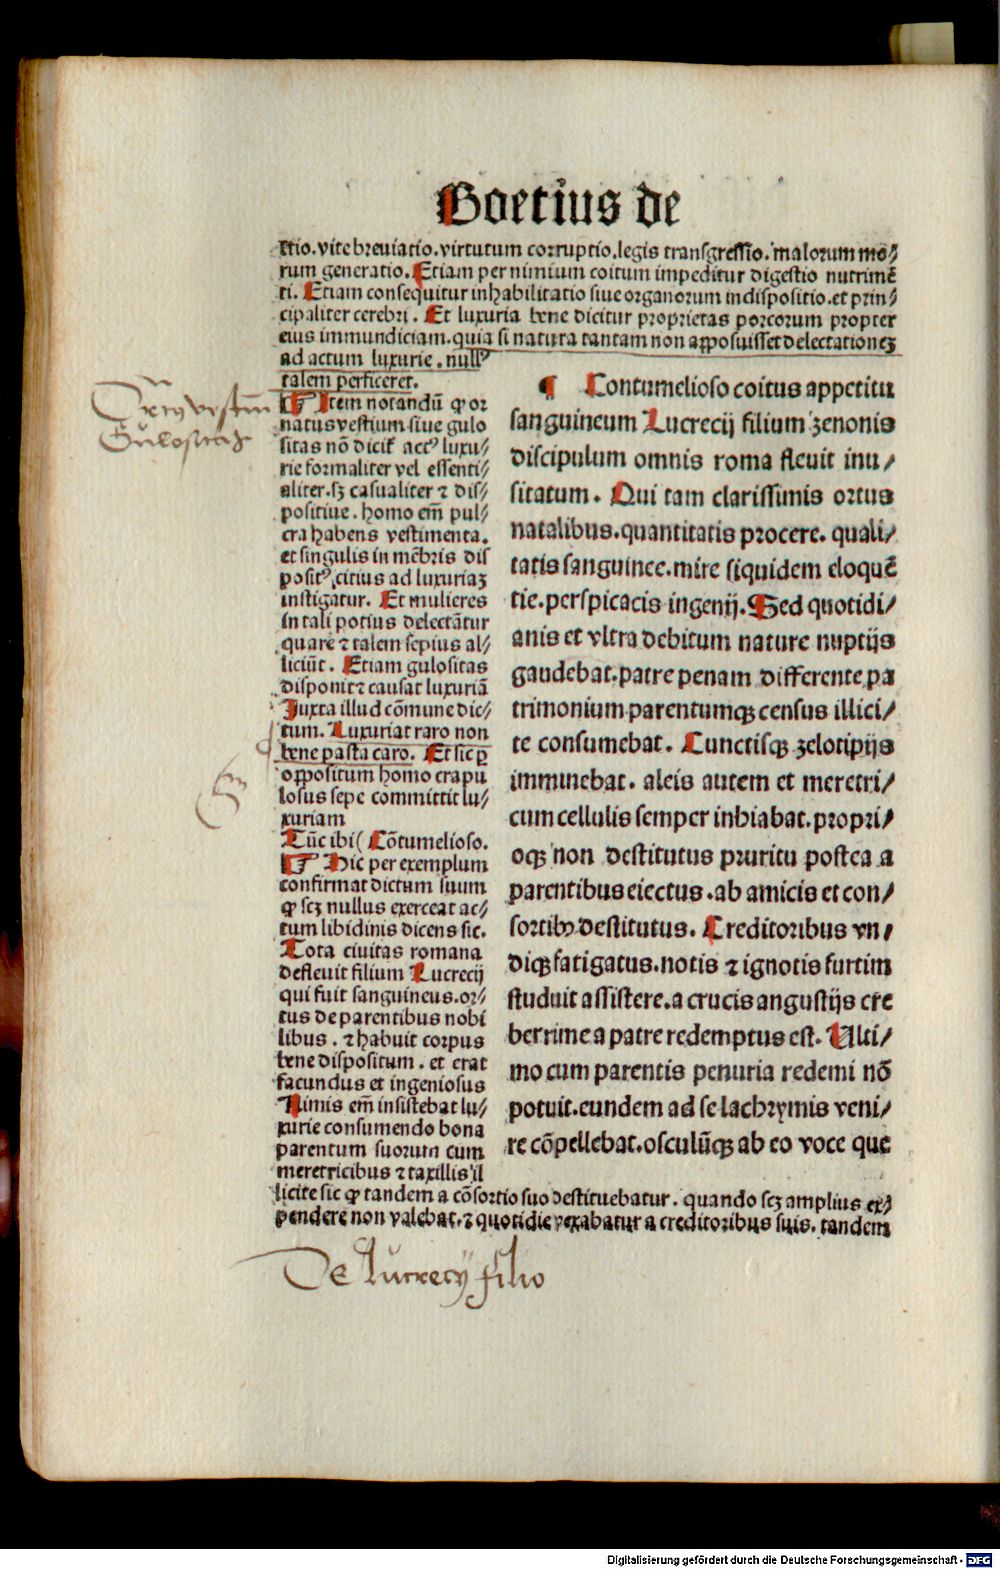 Boetius de
ctio. vite breuiatio. virtutum corruptio. legis transgressio. malorum mo⸗
rum generatio. Etiam per nimium coitum impeditur digestio nutrimē
ti. Etiam consequitur inhabilitatio siue organorum indispositio. et prin⸗
cipaliter cerebri. Et luxuria bene dicitur proprietas porcorum propter
eius immundiciam. quia si natura tantam non apposuisset delectationeꝫ
ad actum luxurie. nullꝰ
talem perficeret.
¶ Item notandū ꝙ or
natus vestium siue gulo
sitas nō dicit᷑ actꝰ luxu⸗
rie formaliter vel essenti⸗
aliter. sꝫ casualiter ⁊ dis⸗
positiue. homo em̄ pul⸗
cra habens vestimenta.
et singulis in mēbris dis
positꝰ, citius ad luxuriaꝫ
instigatur. Et mulieres
in tali potius delectātur
quare ⁊ talem sepius al⸗
liciūt. Etiam gulositas
disponit ⁊ causat luxuriā
Juxta illud cōmune dic⸗
tum. Luxuriat raro non
bene pasta caro. Et sic ꝑ
oppositum homo crapu
losus sepe committit lu⸗
xuriam
Tūc ibi ( Cōtumelioso.
¶ Hic per exemplum
confirmat dictum suum
ꝙ scꝫ nullus exerceat ac⸗
tum libidinis dicens sic.
Tota ciuitas romana
defleuit filium Lucrecij
qui fuit sanguineus. or⸗
tus de parentibus nobi
libus. ⁊ habuit corpus
bene dispositum. et erat
facundus et ingeniosus
Nimis em̄ insistebat lu⸗
xurie consumendo bona
parentum suorum cum
meretricibus ⁊ taxillis il
licite sic ꝙ tandem a cōsortio suo destituebatur. quando scꝫ amplius ex⸗
pendere non valebat. ⁊ quotidie vexabatur a creditoribus suis. tandem
¶ Contumelioso coitus appetitu
sanguineum Lucrecij filium zenonis
discipulum omnis roma fleuit inu⸗
sitatum. Qui tam clarissimis ortus
natalibus. quantitatis procere. quali⸗
tatis sanguinee. mire siquidem eloquē
tie. perspicacis ingenij. Sed quotidi⸗
anis et vltra debitum nature nuptijs
gaudebat. patre penam differente pa
trimonium parentumqꝫ census illici⸗
te consumebat. Cunctisqꝫ zelotipijs
imminebat. aleis autem et meretri⸗
cum cellulis semper inhiabat. propri⸗
oqꝫ non destitutus pruritu postea a
parentibus eiectus. ab amicis et con⸗
sortibꝰ destitutus. Creditoribus vn⸗
diqꝫ fatigatus. notis ⁊ ignotis furtim
studuit assistere. a crucis angustijs cre
berrime a patre redemptus est. Ulti⸗
mo cum parentis penuria redemi nō
potuit. eundem ad se lachrymis veni⸗
re cōpellebat. osculūqꝫ ab eo voce que
Gulositas
De Lucrecij filio
Digitalisierung gefördert durch die Deutsche Forschungsgemeinschaft - DFG